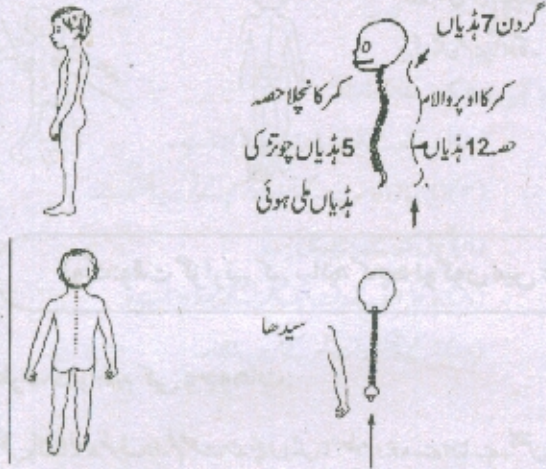 گردن 7 ہڈیاں
کمر کا اوپر والا
حصہ 12 ہڈیاں
کمر کا نچلا حصہ
5 ہڈیاں چوتڑ کی
ہڈیاں ملی ہوئی
سیدھا